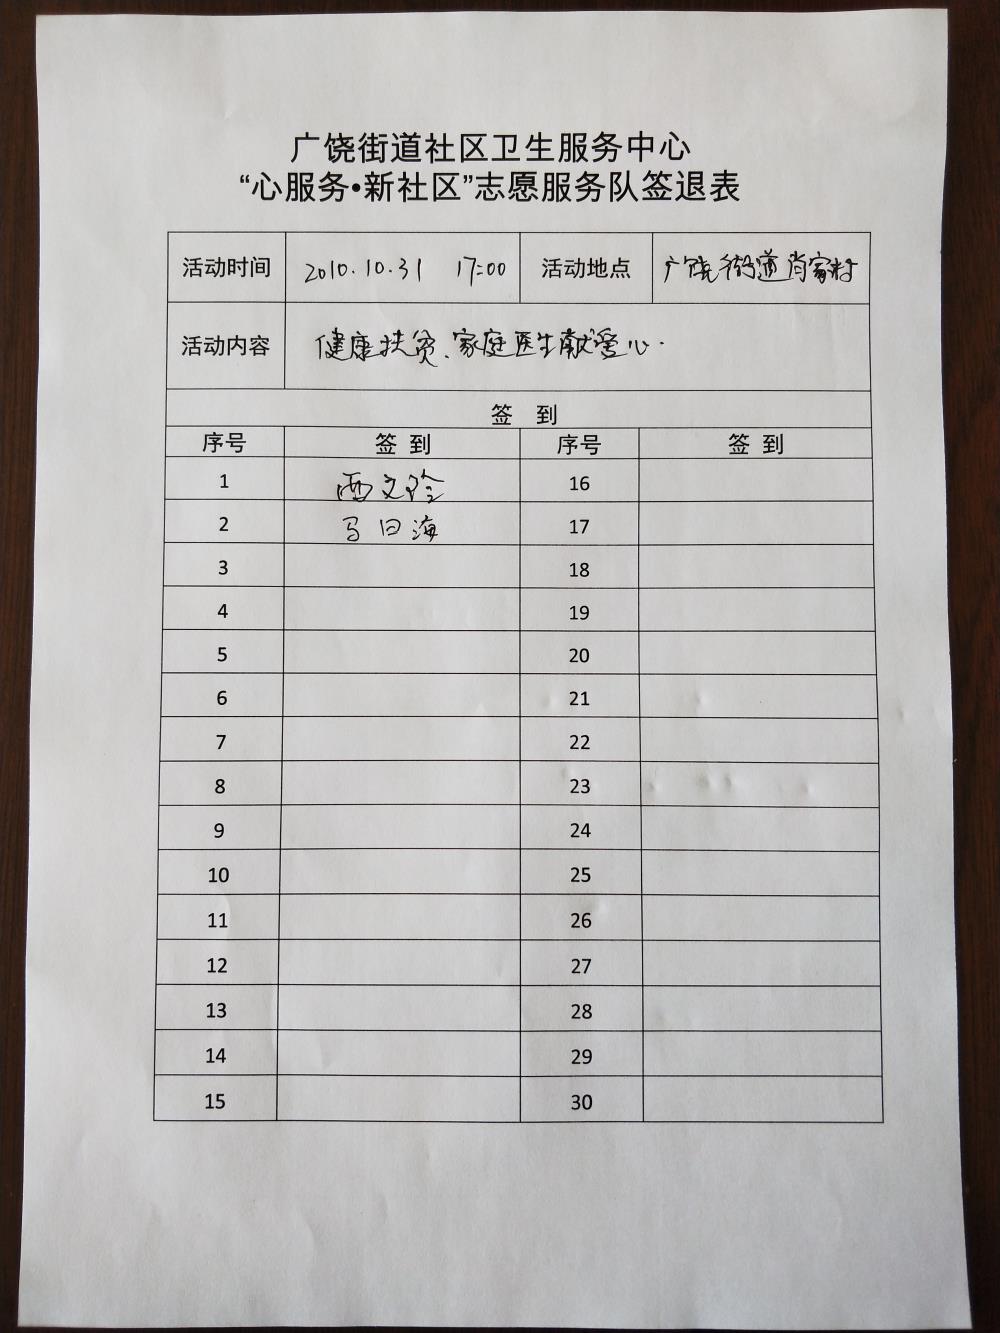 广饶街道社区卫生服务中心
“心服务•新社区”志愿服务队签退表
活动时间 2010.10.31 17:00 活动地点 广饶街道肖家村
活动内容 健康扶贫、家庭医生献爱心.
签 到
序号 签 到 序号 签 到
1 西文玲 16
2 马曰海 17
3 18
4 19
5 20
6 21
7 22
8 23
9 24
10 25
11 26
12 27
13 28
14 29
15 30